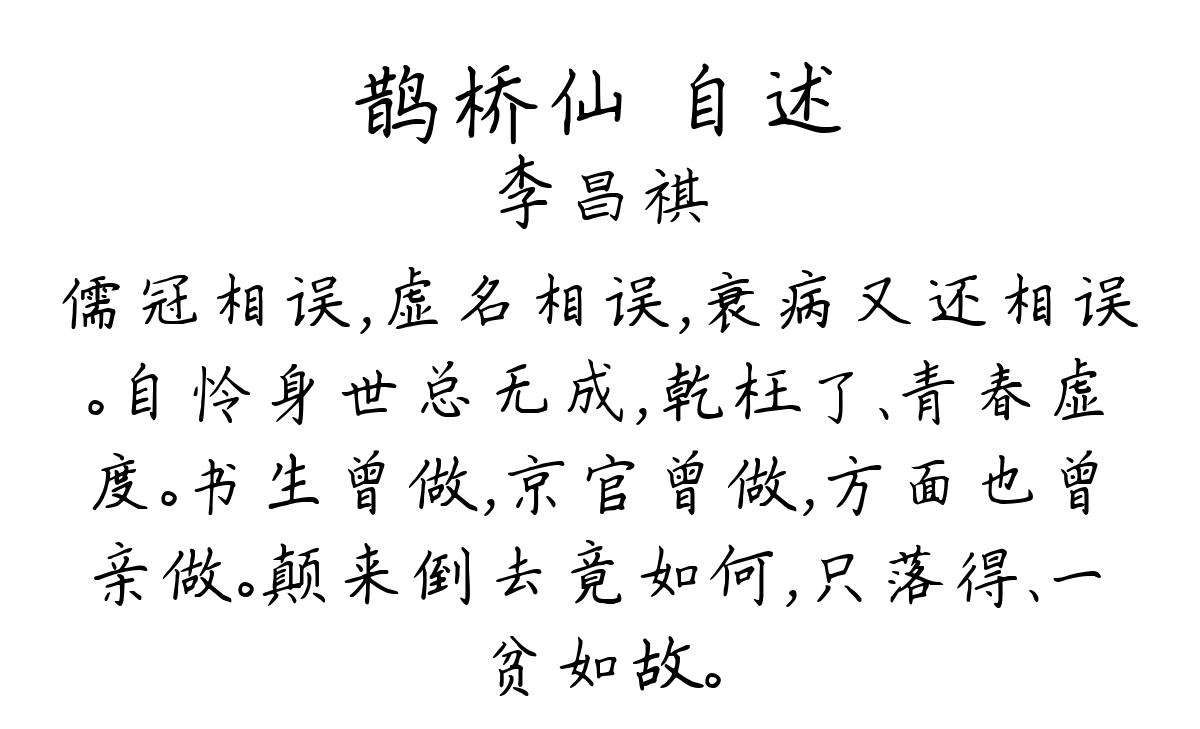 鹊桥仙 自述
李昌祺
儒冠相误,虚名相误,衰病又还相误
。自怜身世总无成,乾枉了、青春虚
度。书生曾做,京官曾做,方面也曾
亲做。颠来倒去竟如何,只落得、一
贫如故。